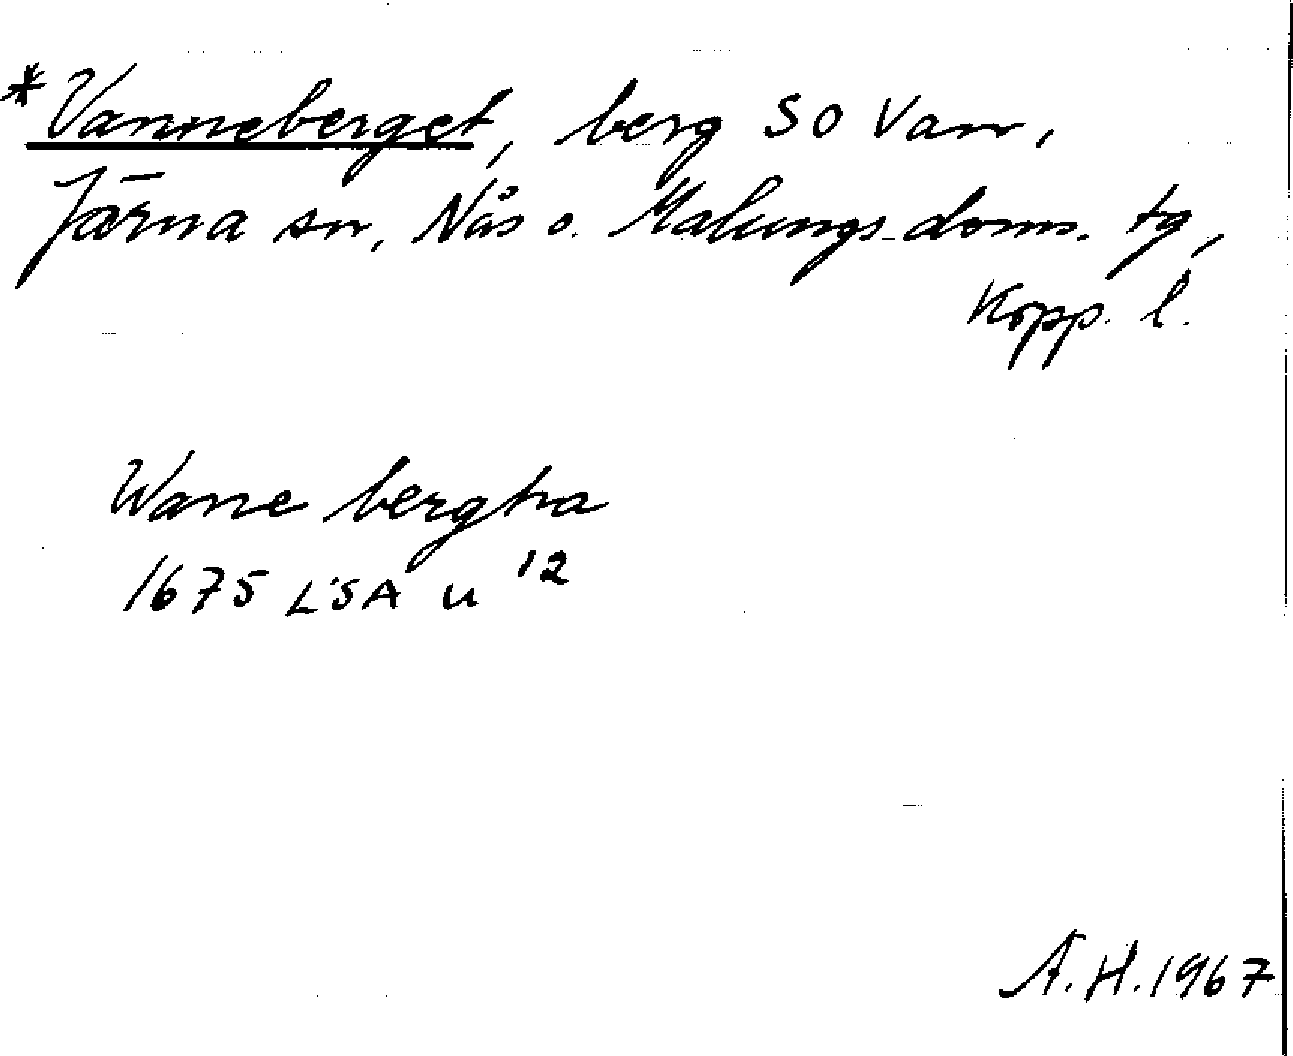 *Vanneberget, berg SO Van,
Järna sn, Nås o. Malungs doms. tg,
Kopp. l.
Wanebergha
1675 LSA U 12
A.H. 1967